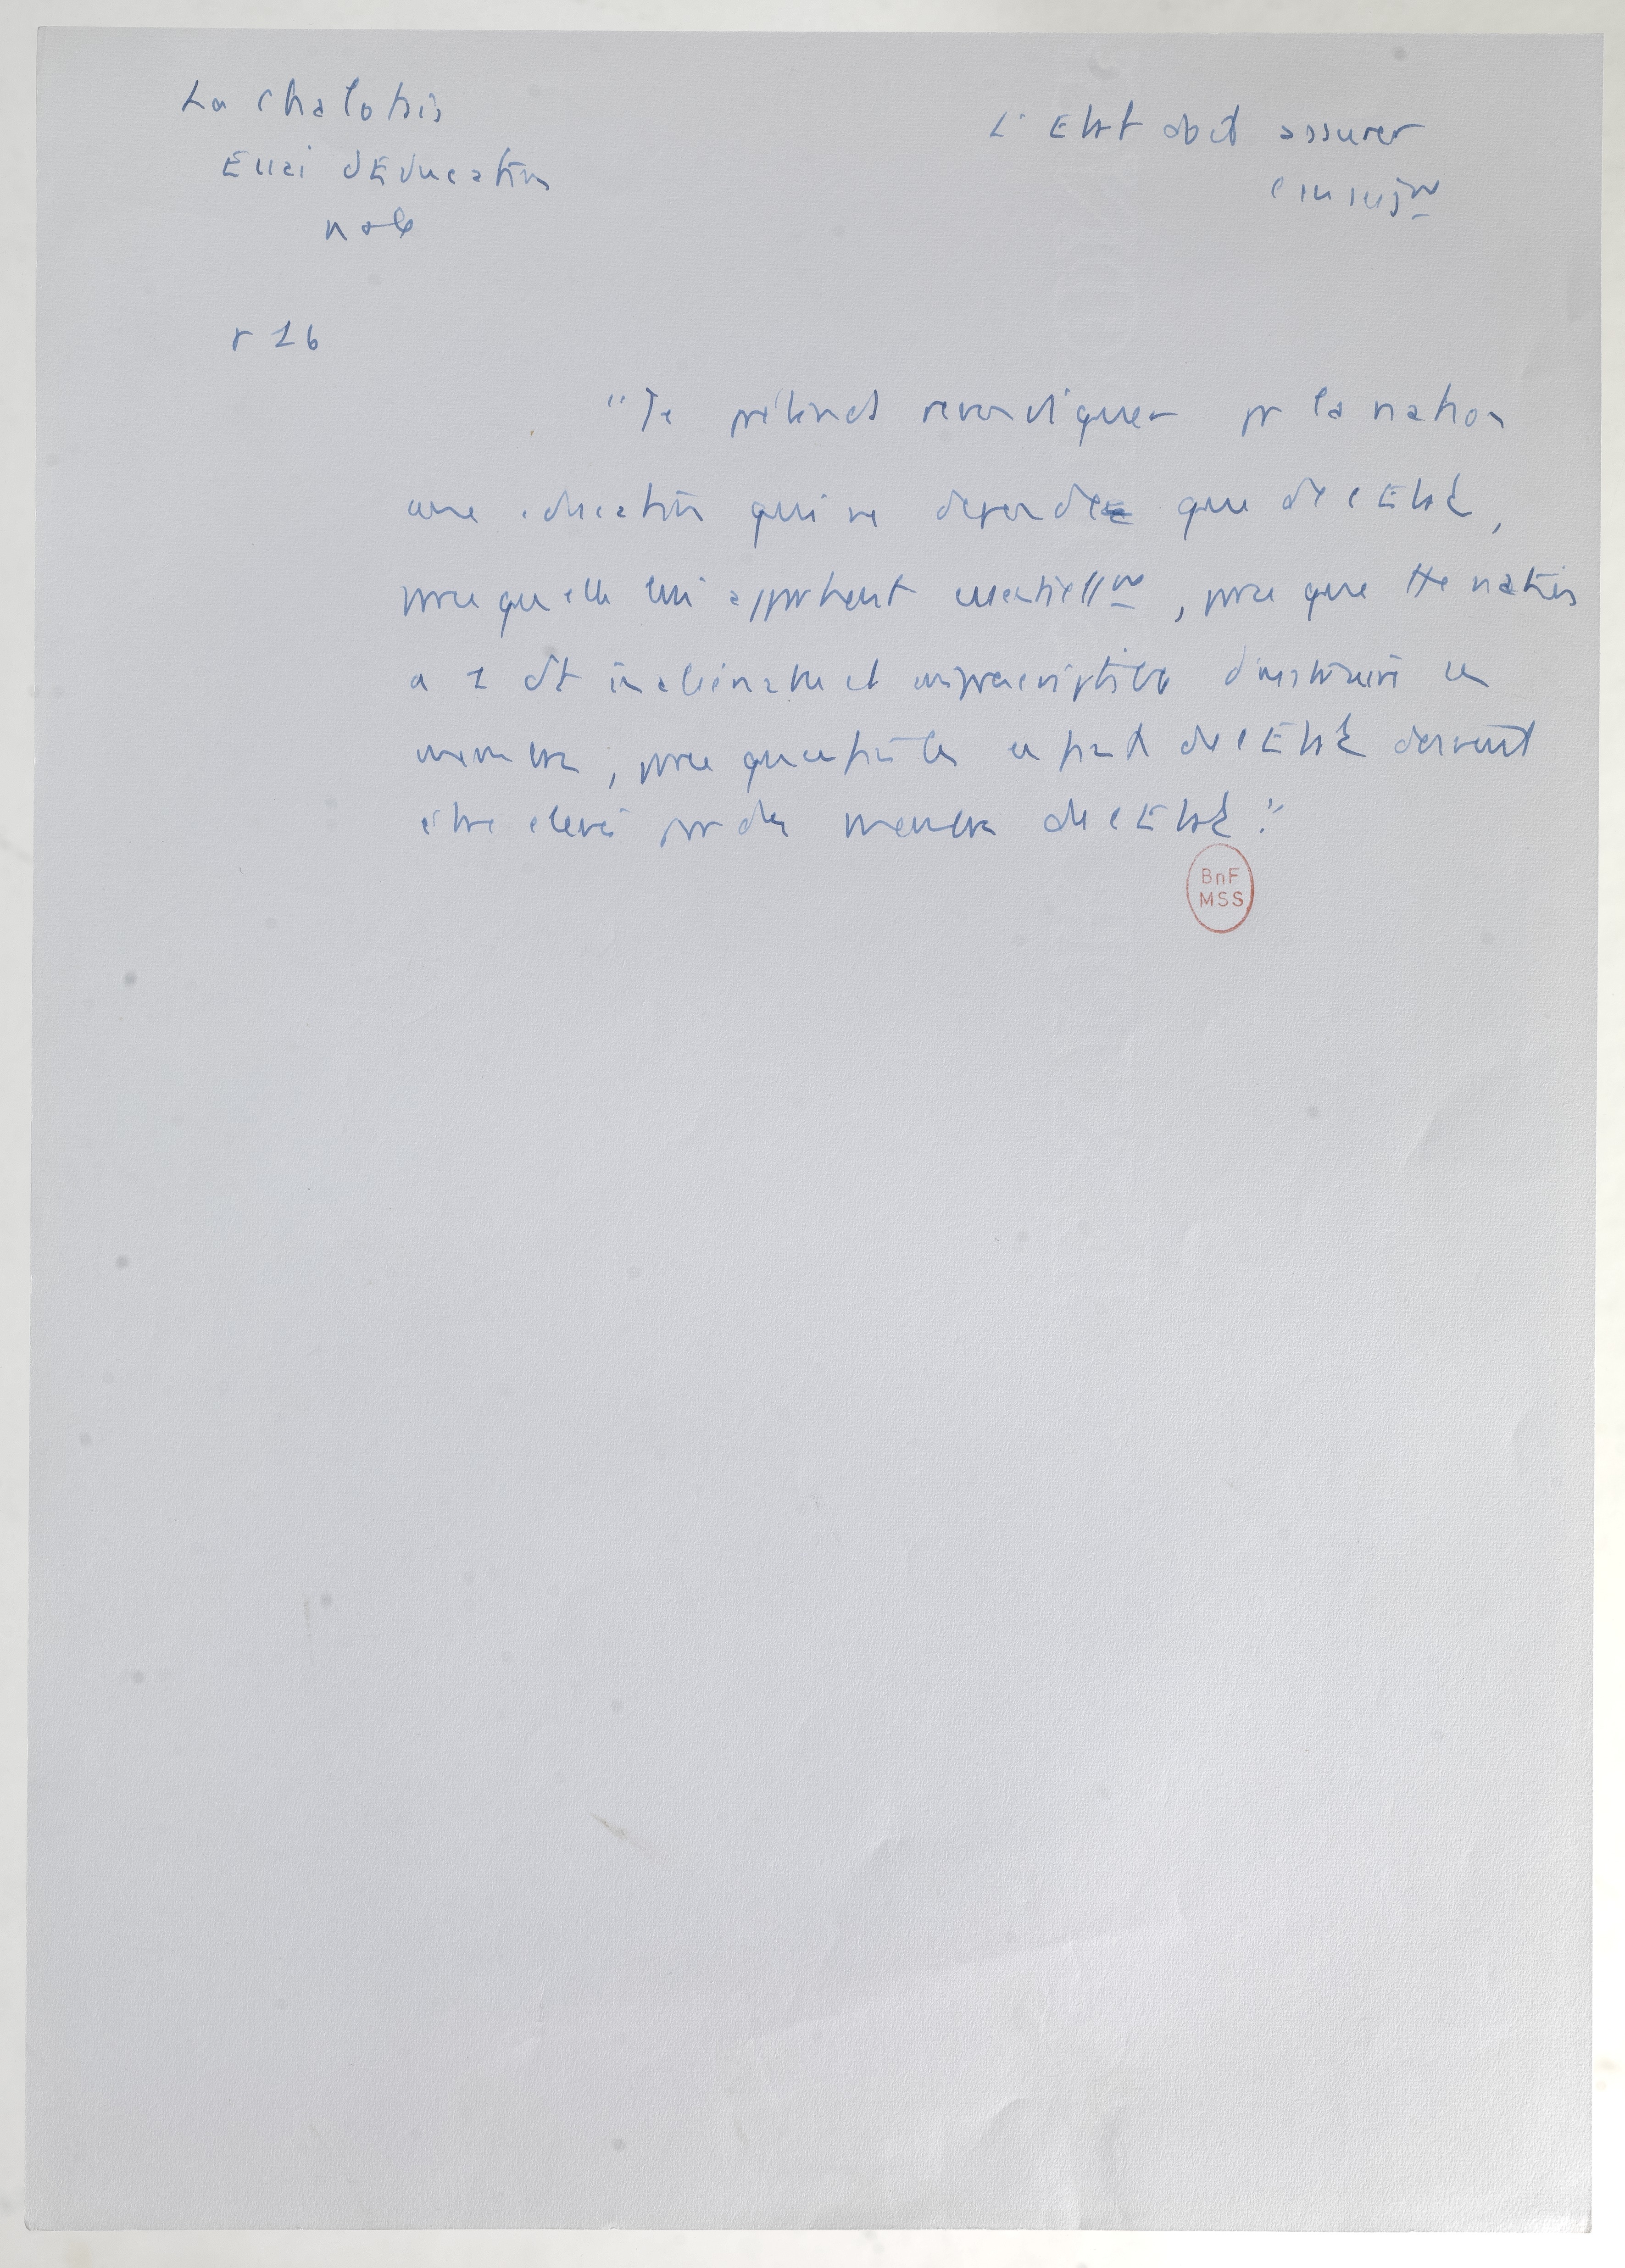 La Chalotais
Essai d'Education
nale
L'Etat doit assurer
l'enseignt
p 16
"Je prétends revendiquer pr la nation
une éducation qui ne dépende que de l'Etat,
parce qu'elle lui appartient essentiellmt, parce que tte nation
a 1 dt inaliénable et imprescriptible d'instruire ses
membres, parce qu'enfin les de l'Etat doivent
être élevés par des membres de l'Etat."
BnF
MSS